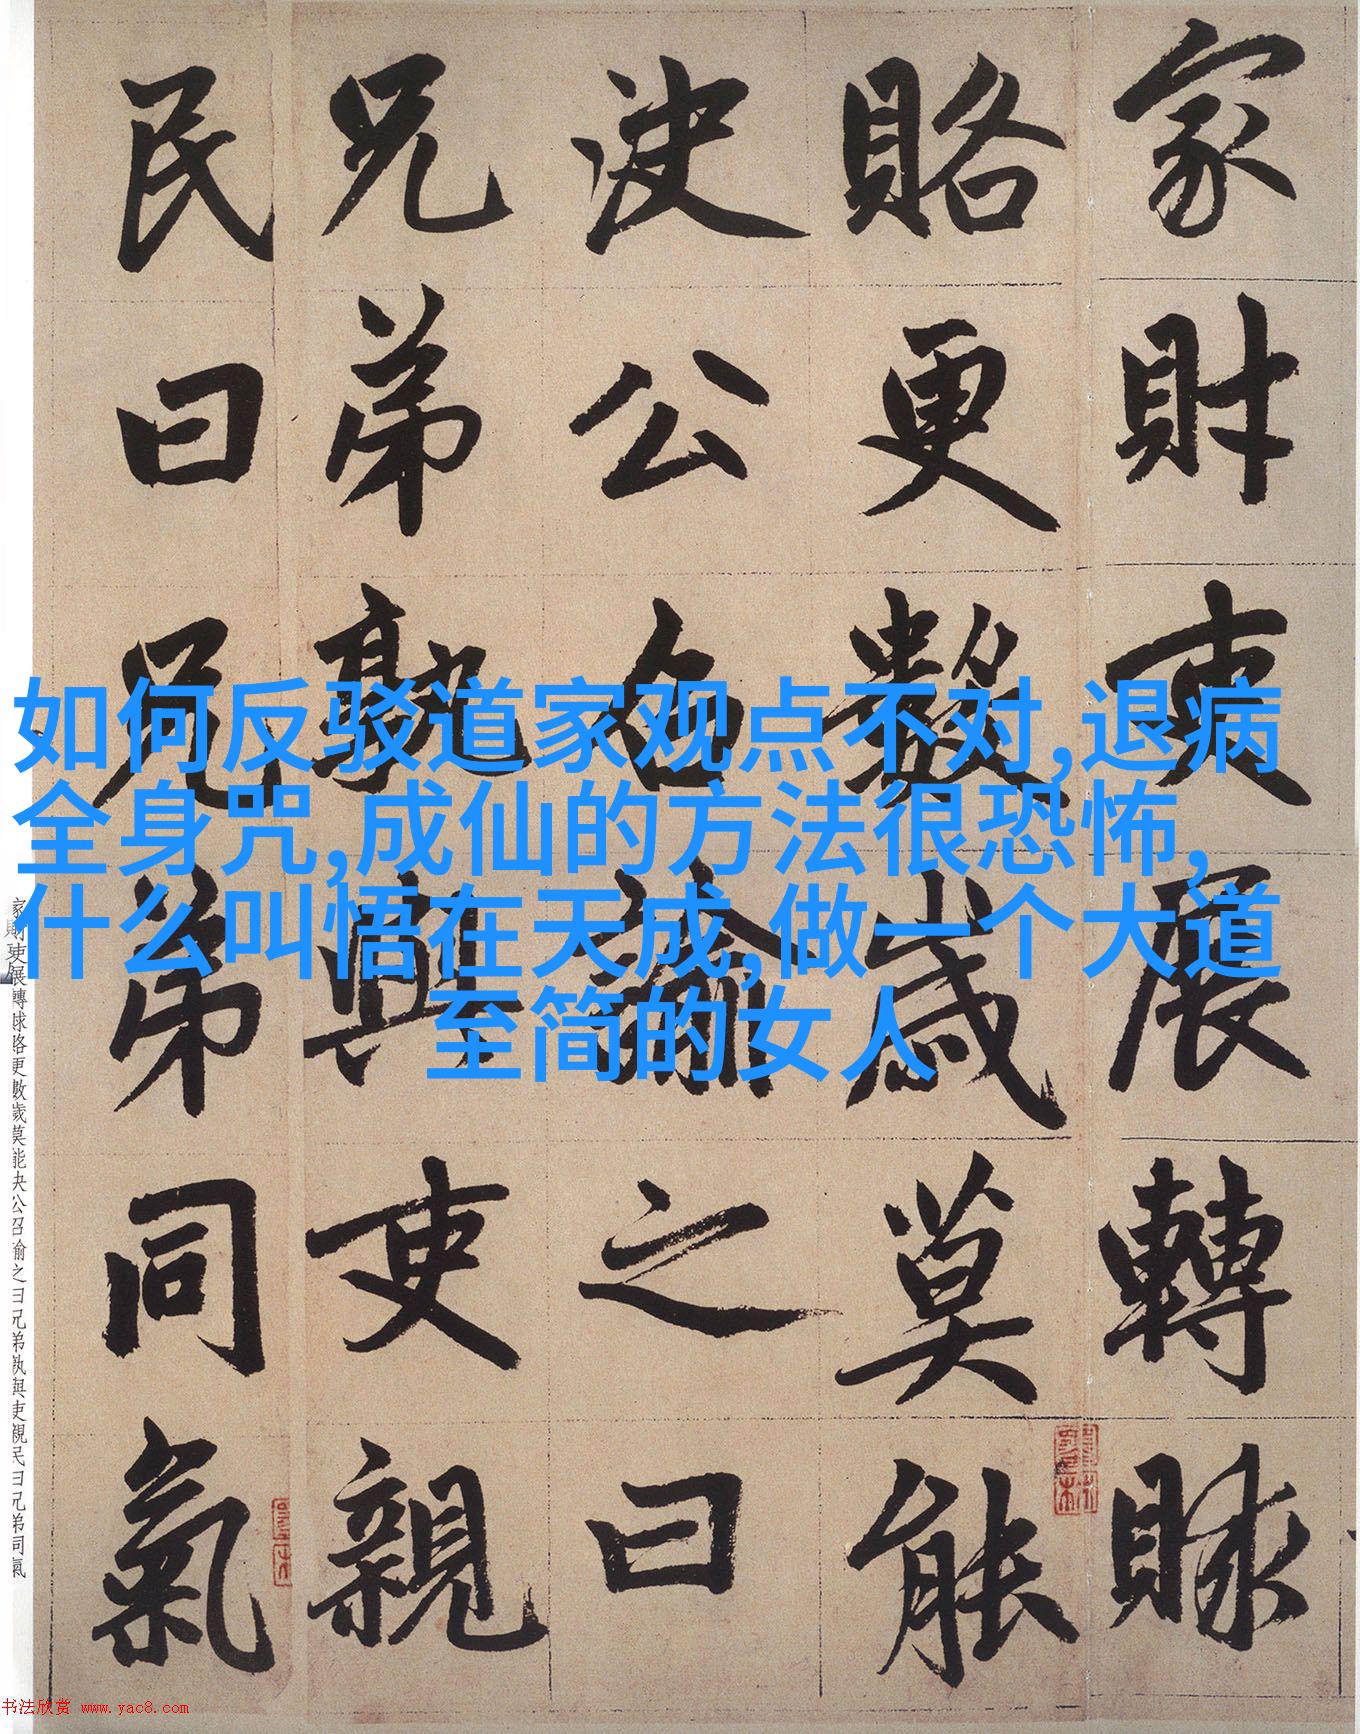 家財吏展轉賕
賂更數歲莫能
決公召諭之曰
兄弟孰與吏親
民曰兄弟同氣
如何反驳道家观点不对,退病
全身咒,成仙的方法很恐怖,
什么叫悟在天成,做一个大道
至简的女人
家財吏展轉賕賂更數歲莫能决公召諭之曰兄弟孰與吏親民曰兄弟同氣
书法欣赏 www.yac8.com